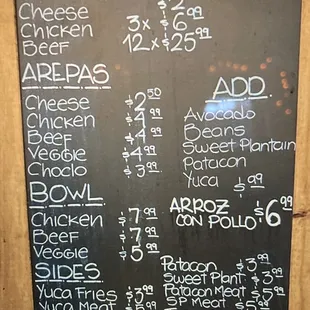 Cheese $2
Chicken 3x $6.99
Beef 12x $25.99
AREPAS
Cheese $2.50
Chicken $4.99
Beef $4.99
Veggie $4.99
Choclo $3.99
BOWL
Chicken $7.99
Beef $7.99
Veggie $5.99
SIDES
Yuca Fries $3.99
Yuca Meat
ADD
Avocado
Beans
Sweet Plantain
Patacon
Yuca $1.99
ARROZ
CON POLLO $6.99
Patacon $3.99
Sweet Plant $3.99
Patacon Meat $5.99
SP Meat